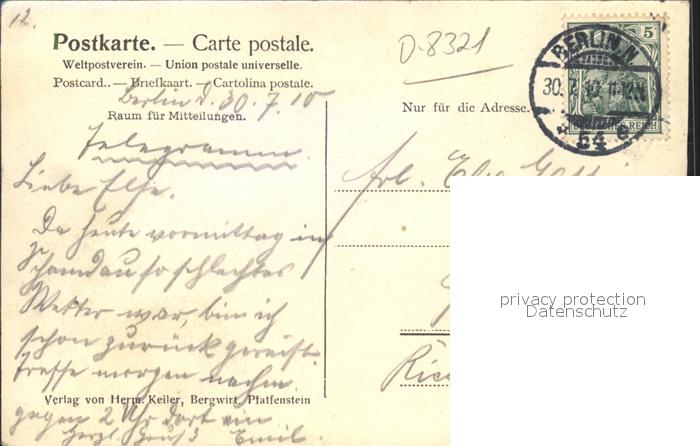 12.
Postkarte. — Carte postale.
Weltpostverein. — Union postale universelle.
Postcard. — Briefkaart. — Cartolina postale.
Berlin d. 30.7.10
Raum für Mitteilungen.
D-8321
Nur für die Adresse.
5
BERLIN N
30.7.10. 11-12N
54
DEUTSCHES REICH
Telegramm.
Liebe Else.
Da heute vormittag in
Schandau so schlechtes
Wetter war, bin ich
schon zurück gereist.
Treffe morgen nachm.
gegen 2 Uhr dort ein
Herzl. Gruß Emil.
Frl. Else
Verlag von Herm. Keiler, Bergwirt, Pfaffenstein
privacy protection
Datenschutz